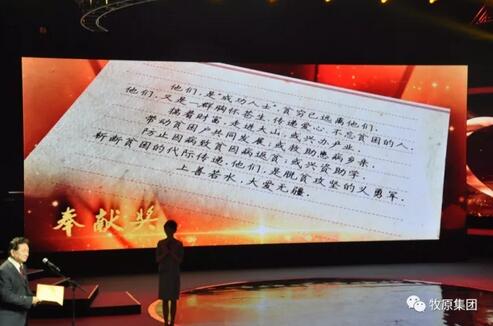 他们，是“成功人士”，贫穷已远离他们。
他们，又是一群胸怀苍生，传递爱心，不忘贫困的人。
揣着财富，走进大山，或兴办产业，
带动贫困户共同发展；或救助患病乡亲，
防止因病致贫因病返贫；或兴资助学，
斩断贫困的代际传递。他们，是脱贫攻坚的义勇军。
上善若水，大爱无疆。
奉献奖
牧原集团